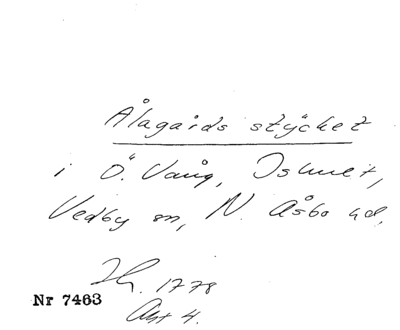 Ålagårds stycket
i Ö. Vång,
Vedby sn, N. Åsbo hd.
1778
Nr 7463
Akt 4.